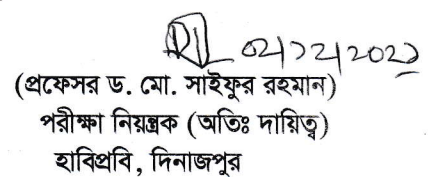 ০২/১২/২০২১
(প্রফেসর ড. মো. সাইফুর রহমান)
পরীক্ষা নিয়ন্ত্রক (অতিঃ দায়িত্ব)
হাবিপ্রবি, দিনাজপুর